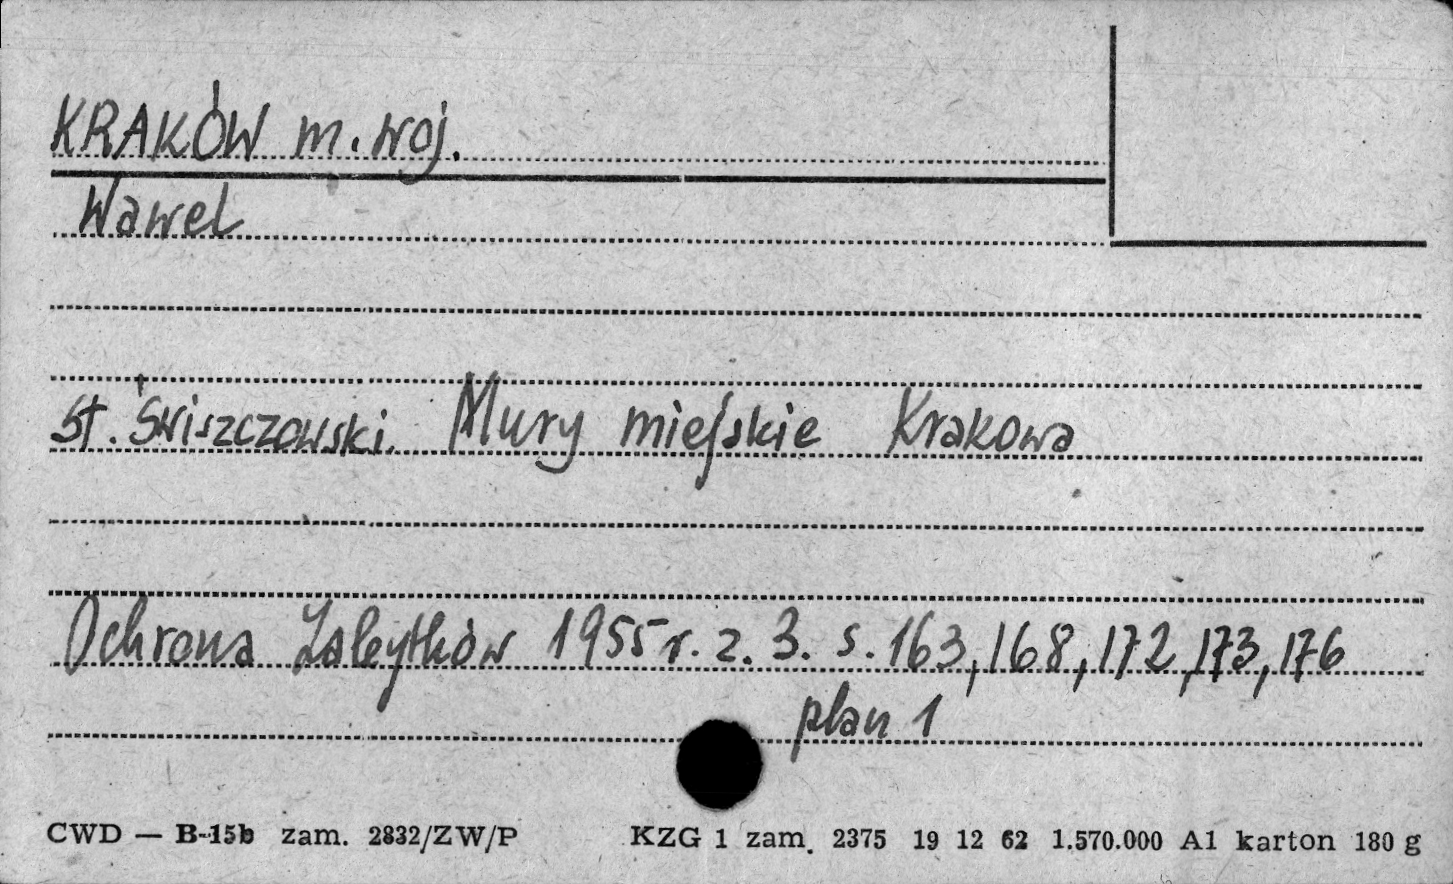 KRAKÓW m. woj.
Wawel
St. Świszczowski. Mury miejskie Krakowa
Ochrona Zabytków 1955 r. z. 3. s. 163, 168, 172, 173, 176
plan 1
CWD — B-15b zam. 2832/ZW/P KZG 1 zam. 2375 19 12 62 1.570.000 A1 karton 180 g